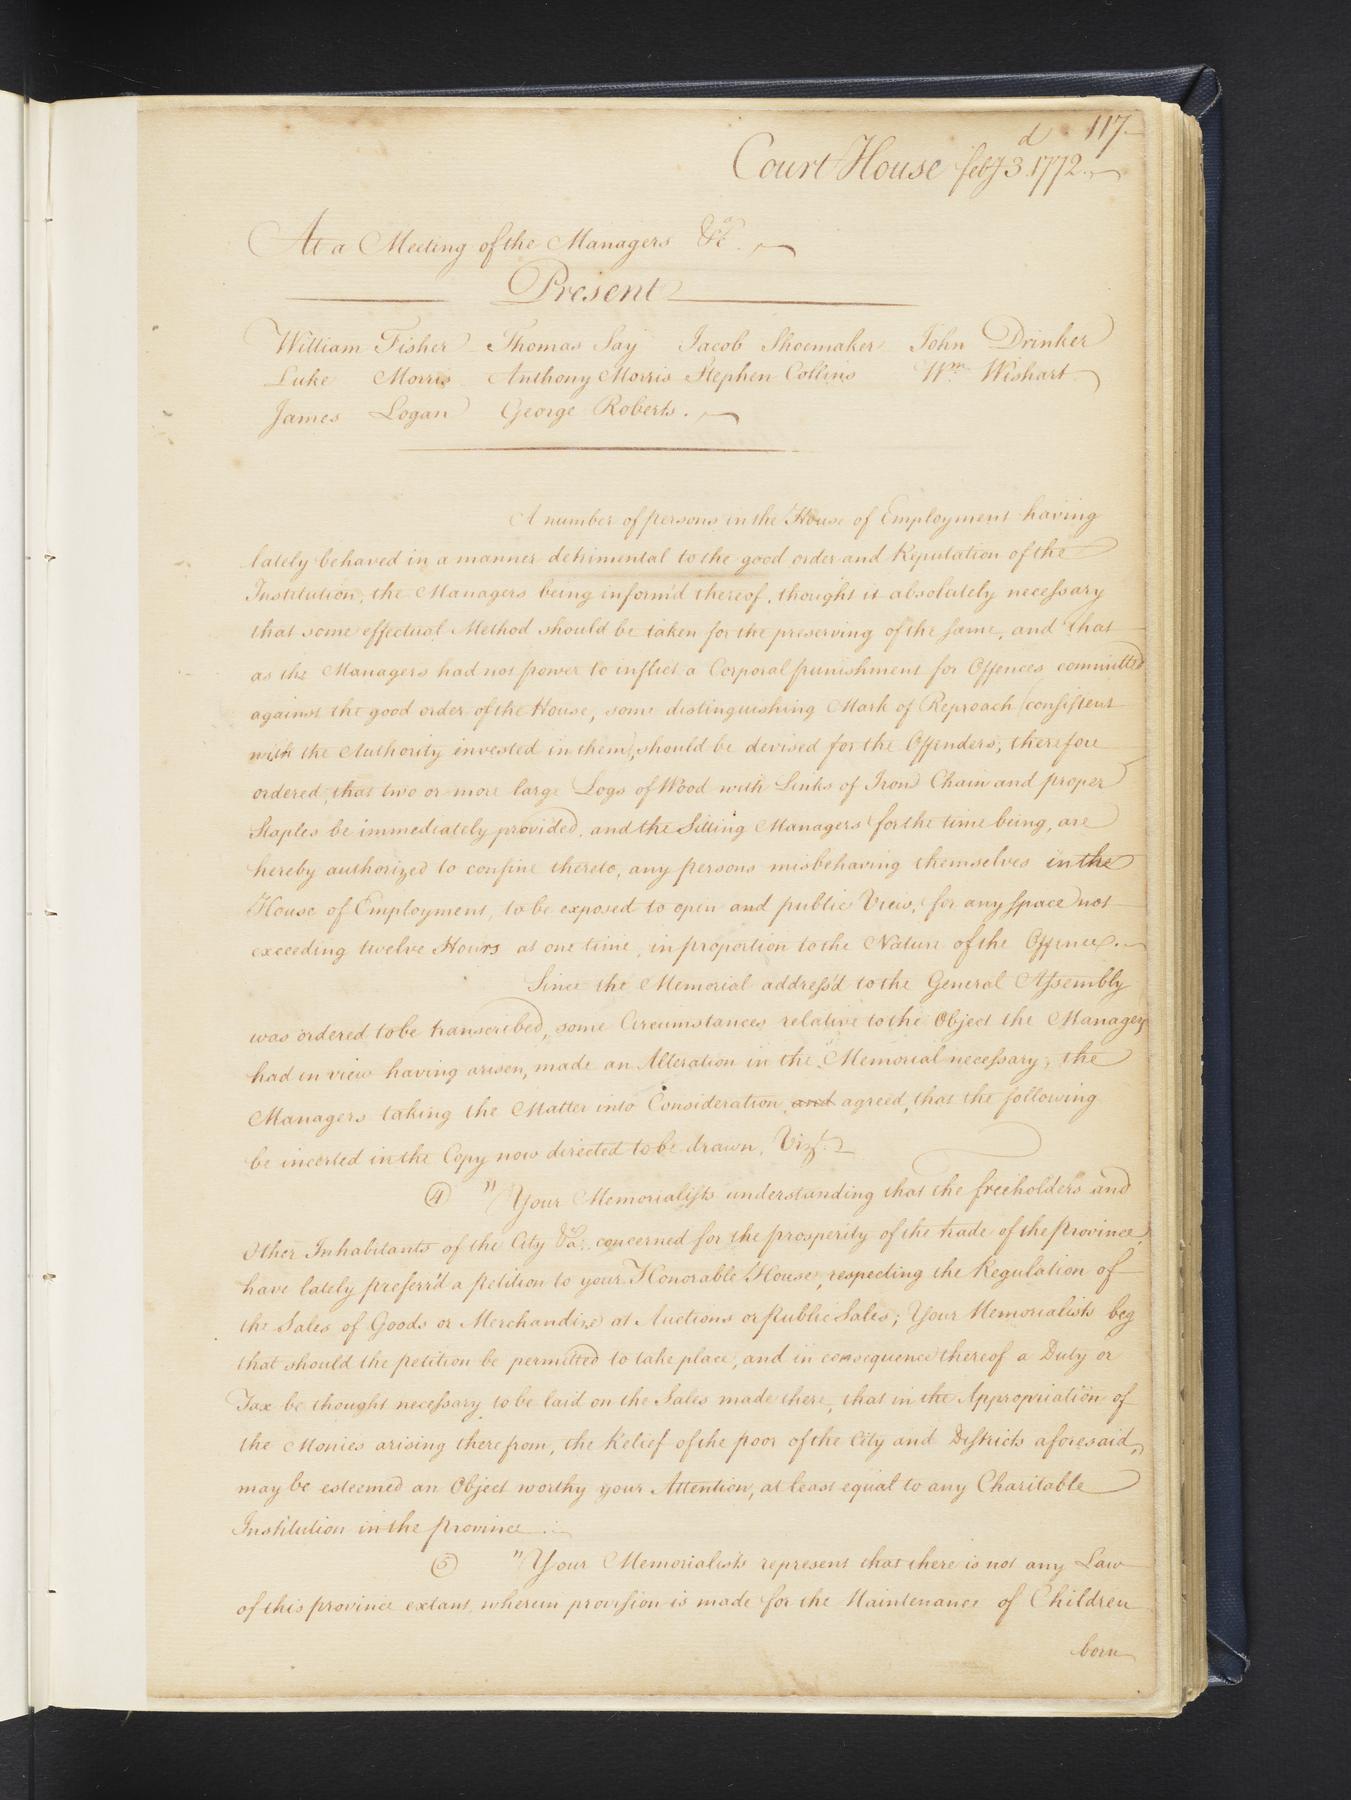 117
Court House feby 3d 1772.
At a Meeting of the Managers &ca.
Present
William Fisher Thomas Say Jacob Shoemaker John Drinker
Luke Morris Anthony Morris Stephen Collins Wm Wishart
James Logan George Roberts.
A number of persons in the House of Employment having
lately behaved in a manner detrimental to the good order and Reputation of the
Institution, the Managers being inform'd thereof, thought it absolutely necessary
that some effectual Method should be taken for the preserving of the same, and that
as the Managers had not power to inflict a Corporal punishment for Offences committed
against the good order of the House, some distinguishing Mark of Reproach (consistent
with the Authority invested in them), should be devised for the Offenders, therefore
ordered, that two or more large Logs of Wood with Links of Iron Chain and proper
Staples be immediately provided, and the Sitting Managers for the time being, are
hereby authorized to confine thereto, any persons misbehaving themselves in the
House of Employment, to be exposed to open and public View, for any space not
exceeding twelve Hours at one time, in proportion to the Nature of the Offence.
Since the Memorial address'd to the General Assembly
was ordered to be transcribed, some Circumstances relative to the Object the Managers
had in view having arisen, made an Alteration in the Memorial necessary, the
Managers taking the Matter into Consideration, and agreed, that the following
be incerted in the Copy now directed to be drawn, Vizt.
(4) "Your Memorialists understanding that the freeholders and
Other Inhabitants of the City &ca. concerned for the prosperity of the trade of the Province,
have lately preferr'd a petition to your Honorable House, respecting the Regulation of
the Sales of Goods or Merchandize at Auctions or Public Sales; Your Memorialists beg
that should the petition be permitted to take place, and in consequence thereof a Duty or
Tax be thought necessary to be laid on the Sales made there, that in the Appropriation of
the Monies arising therefrom, the Relief of the poor of the City and Districts aforesaid,
may be esteemed an Object worthy your Attention, at least equal to any Charitable
Institution in the province.
(5) "Your Memorialists represent that there is not any Law
of this province extant, wherein provision is made for the Maintenance of Children
born